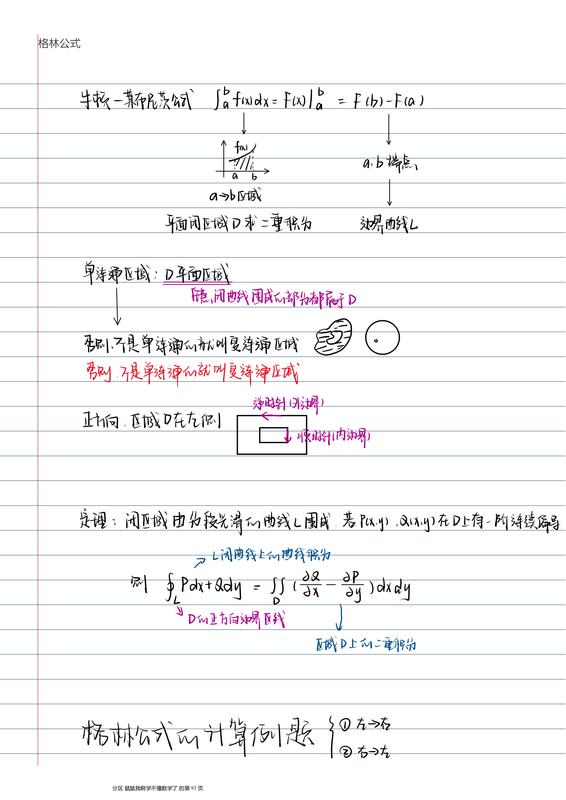 格林公式
牛顿-莱布尼茨公式 ∫ₐᵇ f(x)dx = F(x)|ₐᵇ = F(b)-F(a)
f(x)
a b
a,b端点
a→b区域
平面闭区域D求二重积分 边界曲线L
单连通区域: D平面区域
随意闭曲线围成的部分都属于D
否则,不是单连通的就叫复连通区域
否则,不是单连通的就叫复连通区域
逆时针(外边界)
正方向:区域D在左侧
顺时针(内边界)
定理: 闭区域由分段光滑的曲线L围成,若P(x,y),Q(x,y)在D上有一阶连续偏导
L闭曲线上的曲线积分
则 ∮_L Pdx+Qdy = ∬_D (∂Q/∂x - ∂P/∂y)dxdy
D的正方向边界区线
区域D上的二重积分
格林公式的计算例题 { ① 左→右
② 右→左
分区 鼠鼠我啊学不懂数学了 的第 93 页